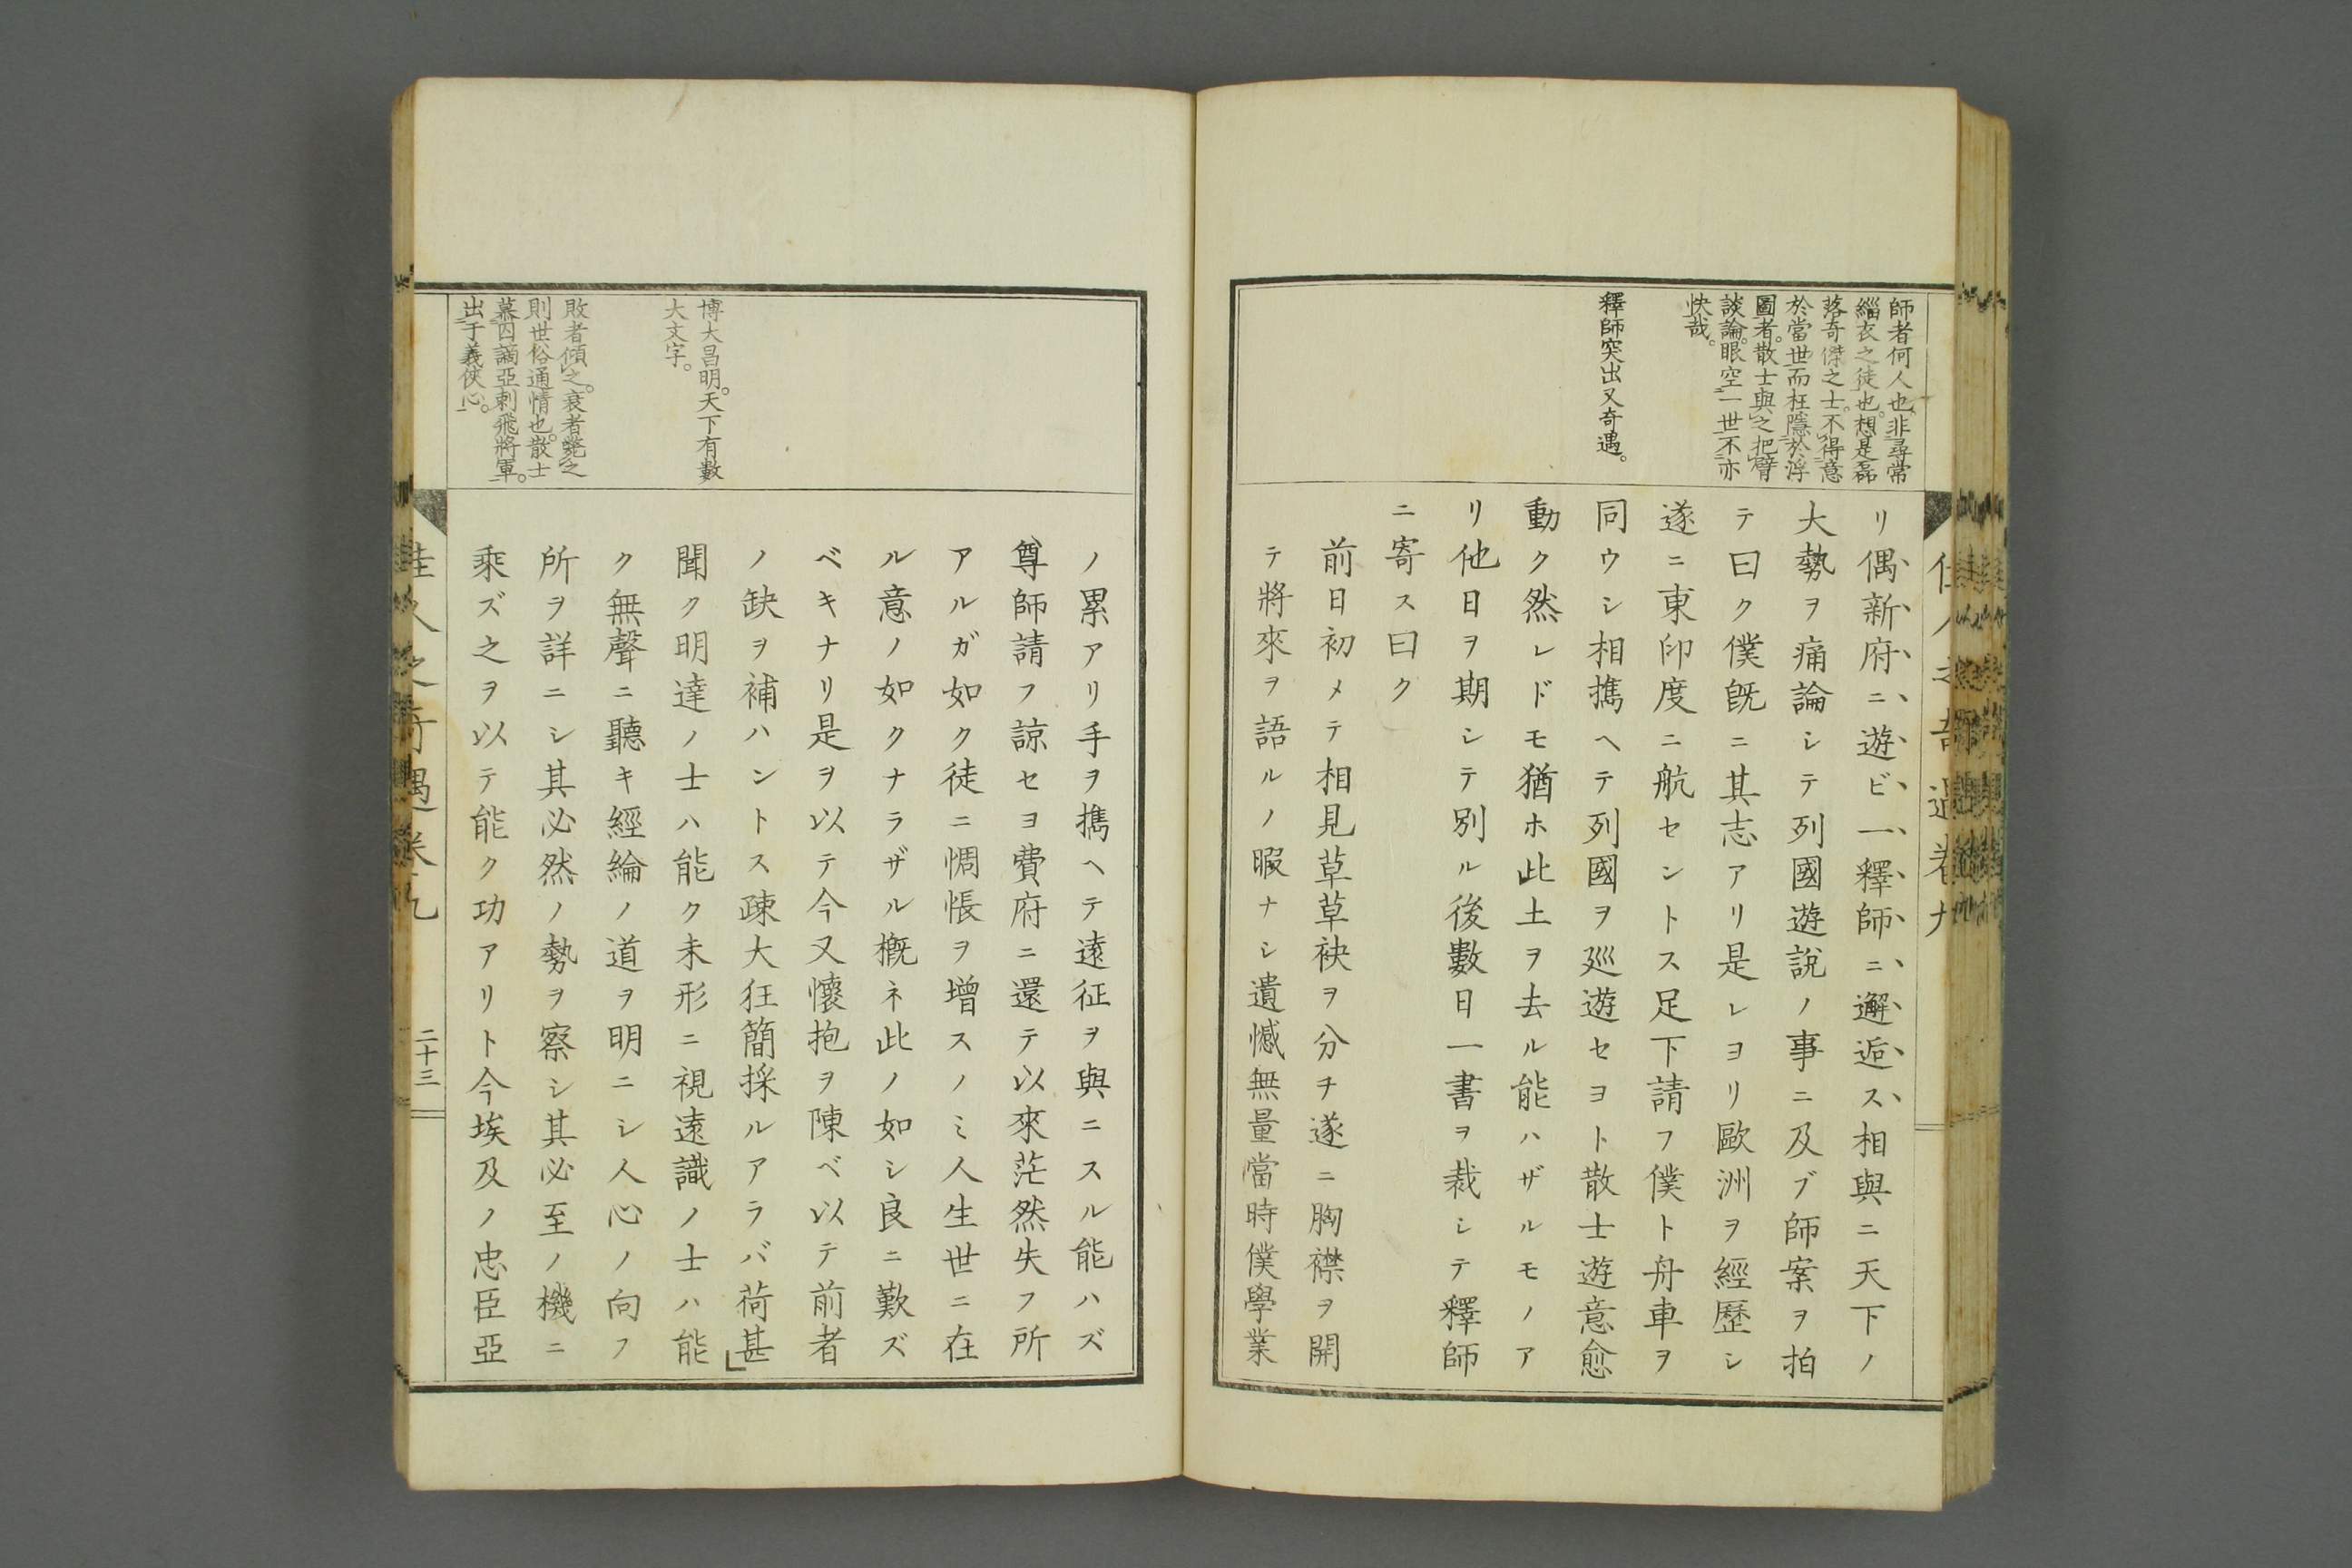 師者何人也非尋常
緇衣之徒也。想是磊
落奇傑之士。不得意
於當世而枉隱於浮
圖者。散士與之把臂
談論。眼空一世不亦
快哉。
釋師突出又奇遇。
リ偶新府ニ遊ビ一釋師ニ邂逅ス相與ニ天下ノ
大勢ヲ痛論シテ列國遊說ノ事ニ及ブ師案ヲ拍
テ曰ク僕既ニ其志アリ是レヨリ歐洲ヲ經歷シ
遂ニ東印度ニ航セントス足下請フ僕ト舟車ヲ
同ウシ相擕ヘテ列國ヲ巡遊セヨト散士遊意愈
動ク然レドモ猶ホ此土ヲ去ル能ハザルモノア
リ他日ヲ期シテ別ル後數日一書ヲ裁シテ釋師
ニ寄ス曰ク
前日初メテ相見草草袂ヲ分チ遂ニ胸襟ヲ開
テ將來ヲ語ルノ暇ナシ遺憾無量當時僕學業
博大昌明。天下有數
大文字。
敗者傾之。衰者斃之
則世俗通情也。散士
慕囚謫亞剌飛將軍。
出于義俠心。
ノ累アリ手ヲ擕ヘテ遠征ヲ與ニスル能ハズ
尊師請フ諒セヨ費府ニ還テ以來茫然失フ所
アルガ如ク徒ニ惆悵ヲ增スノミ人生世ニ在
ル意ノ如クナラザル概ネ此ノ如シ良ニ歎ズ
ベキナリ是ヲ以テ今又懷抱ヲ陳ベ以テ前者
ノ缺ヲ補ハントス疎大狂簡採ルアラバ荷甚」
聞ク明達ノ士ハ能ク未形ニ視遠識ノ士ハ能
ク無聲ニ聽キ經綸ノ道ヲ明ニシ人心ノ向フ
所ヲ詳ニシ其必然ノ勢ヲ察シ其必至ノ機ニ
乘ズ之ヲ以テ能ク功アリト今埃及ノ忠臣亞
佳人之奇遇卷九
二十三